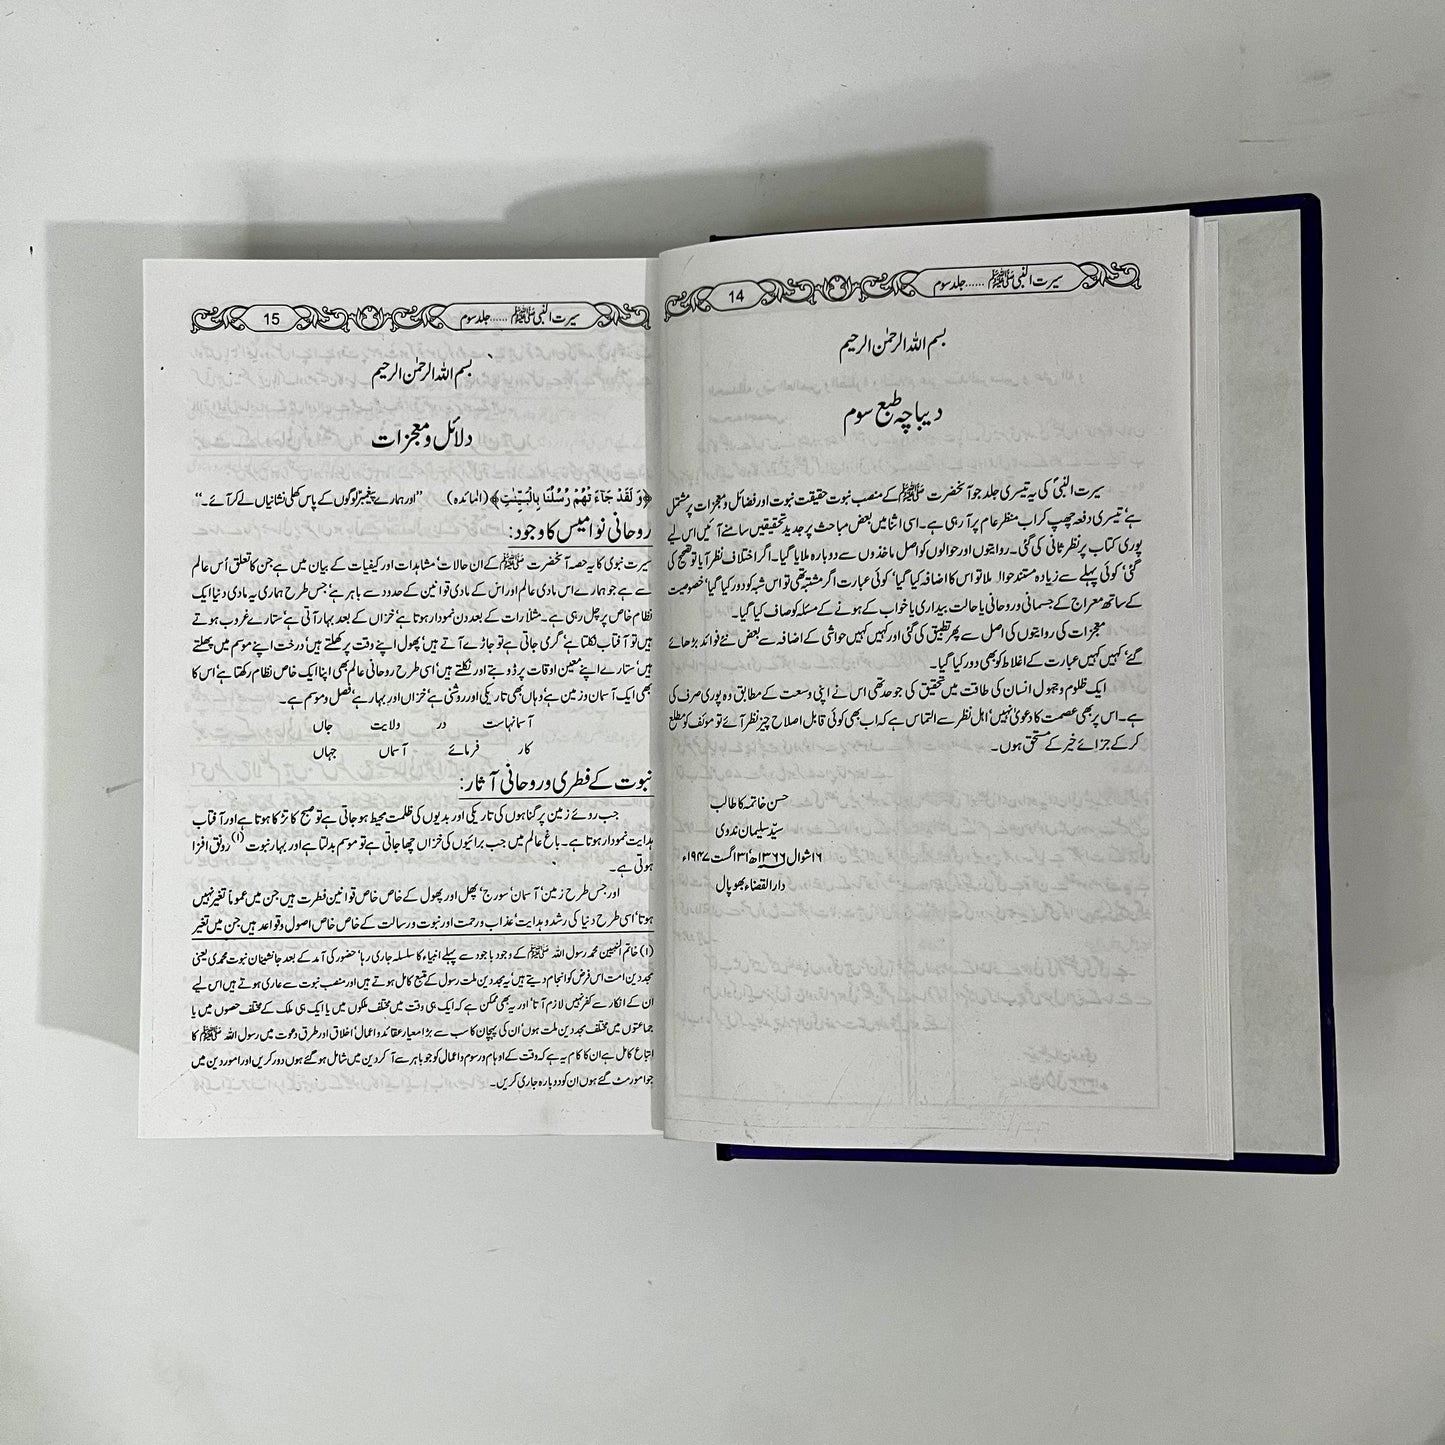 سیرت النبی ﷺ ...... جلد سوم
14
بسم اللہ الرحمٰن الرحیم
دیباچہ طبع سوم
سیرت النبیؐ کی یہ تیسری جلد جو آنحضرت ﷺ کے منصب نبوت حقیقت نبوت اور فضائل و معجزات پر مشتمل
ہے‘ تیسری دفعہ چھپ کر اب منظر عام پر آ رہی ہے۔ اسی اثنا میں بعض مباحث پر جدید تحقیقیں سامنے آئیں اس لیے
پوری کتاب پر نظر ثانی کی گئی۔ روایتوں اور حوالوں کو اصل ماخذوں سے دوبارہ ملایا گیا۔ اگر اختلاف نظر آیا تو تصحیح کی
گئی‘ کوئی پہلے سے زیادہ مستند حوالہ ملا تو اس کا اضافہ کیا گیا‘ کوئی عبارت اگر مشتبہ تھی تو اس شبہ کو دور کیا گیا‘ خصوصیت
کے ساتھ معراج کے جسمانی و روحانی یا حالت بیداری یا خواب کے ہونے کے مسئلہ کو صاف کیا گیا۔
معجزات کی روایتوں کی اصل سے پھر تطبیق کی گئی اور کہیں کہیں حواشی کے اضافہ سے بعض نئے فوائد بڑھائے
گئے‘ کہیں کہیں عبارت کے اغلاط کو بھی دور کیا گیا۔
ایک ظلوم و جہول انسان کی طاقت میں تحقیق کی جو حد تھی اس نے اپنی وسعت کے مطابق وہ پوری صرف کی
ہے۔ اس پر بھی عصمت کا دعویٰ نہیں‘ اہل نظر سے التماس ہے کہ اب بھی کوئی قابل اصلاح چیز نظر آئے تو مؤلف کو مطلع
کر کے جزائے خیر کے مستحق ہوں۔
حسن خاتمہ کا طالب
سیّد سلیمان ندوی
۱۶ شوال ۱۳۶۶ھ‘ ۳۱ اگست ۱۹۴۷ء
دارالقضاء بھوپال
سیرت النبی ﷺ ...... جلد سوم
15
بسم اللہ الرحمٰن الرحیم
دلائل و معجزات
﴿وَ لَقَدْ جَآءَ تْهُمْ رُسُلُنَا بِالْبَيِّنٰتِ﴾ (المائدہ) ’’اور ہمارے پیغمبر لوگوں کے پاس کھلی نشانیاں لے کر آئے۔‘‘
روحانی نوامیس کا وجود:
سیرت نبوی کا یہ حصہ آنحضرت ﷺ کے ان حالات‘ مشاہدات اور کیفیات کے بیان میں ہے جن کا تعلق اُس عالم
سے ہے جو ہمارے اس مادی عالم اور اس کے مادی قوانین کے حدود سے باہر ہے‘ جس طرح ہماری یہ مادی دنیا ایک
نظام خاص پر چل رہی ہے۔ مثلاً رات کے بعد دن نمودار ہوتا ہے‘ خزاں کے بعد بہار آتی ہے‘ ستارے غروب ہوتے
ہیں تو آفتاب نکلتا ہے‘ گرمی جاتی ہے تو جاڑے آتے ہیں‘ پھول اپنے وقت پر کھلتے ہیں‘ درخت اپنے موسم میں پھلتے
ہیں‘ ستارے اپنے معین اوقات پر ڈوبتے اور نکلتے ہیں‘ اسی طرح روحانی عالم بھی اپنا ایک خاص نظام رکھتا ہے‘ اس کا
بھی ایک آسمان و زمین ہے‘ وہاں بھی تاریکی اور روشنی ہے‘ خزاں اور بہار ہے‘ فصل و موسم ہے۔
آسمانہاست در ولایت جاں
کار فرمائے آسماں جہاں
نبوت کے فطری و روحانی آثار:
جب روئے زمین پر گناہوں کی تاریکی اور بدیوں کی ظلمت محیط ہو جاتی ہے تو صبح کا تڑکا ہوتا ہے اور آفتاب
ہدایت نمودار ہوتا ہے۔ باغ عالم میں جب برائیوں کی خزاں چھا جاتی ہے تو موسم بدلتا ہے اور بہار نبوت (۱) رونق افزا
ہوتی ہے۔
اور جس طرح زمین‘ آسمان‘ سورج‘ پھل اور پھول کے خاص خاص قوانین فطرت ہیں جن میں عموماً تغیر نہیں
ہوتا‘ اسی طرح دنیا کی رشد و ہدایت‘ عذاب و رحمت اور نبوت و رسالت کے خاص خاص اصول و قواعد ہیں جن میں تغیر
(۱) خاتم النبیین محمد رسول اللہ ﷺ کے وجود باجود سے پہلے انبیاء کا سلسلہ جاری رہا‘ حضور کی آمد کے بعد جانشینان نبوت محمدی یعنی
مجددین امت اس فرض کو انجام دیتے ہیں‘ یہ مجددین ملت رسول کے متبع کامل ہوتے ہیں اور منصب نبوت سے عاری ہوتے ہیں اس لیے
ان کے انکار سے کفر نہیں لازم آتا‘ اور یہ بھی ممکن ہے کہ ایک ہی وقت میں مختلف ملکوں میں یا ایک ہی ملک کے مختلف حصوں میں یا
جماعتوں میں مختلف مجددین ملت ہوں‘ ان کی پہچان کا سب سے بڑا معیار عقائد و اعمال‘ اخلاق اور طرق دعوت میں رسول اللہ ﷺ کا
اتباع کامل ہے ان کا کام یہ ہے کہ وقت کے اوہام و رسوم و اعمال کو جو باہر سے آ کر دین میں شامل ہو گئے ہوں دور کریں اور امور دین میں
جو امور مٹ گئے ہوں ان کو دوبارہ جاری کریں۔